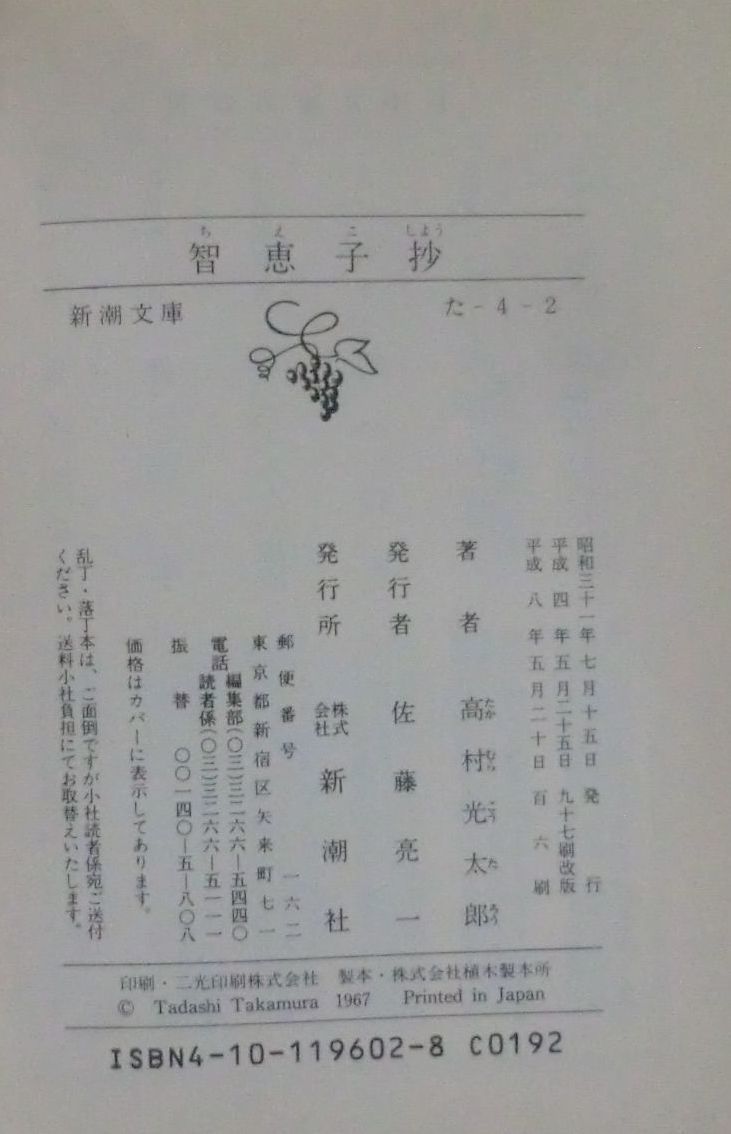 智恵子抄
新潮文庫 た-4-2
昭和三十一年七月十五日発行
平成四年五月二十五日九十七刷改版
平成八年五月二十日百六刷
著者 高村光太郎
発行者 佐藤亮一
発行所 株式会社 新潮社
郵便番号 一六二
東京都新宿区矢来町七一
電話 編集部(〇三)三二六六―五四四〇
読者係(〇三)三二六六―五一一一
振替 〇〇一四〇―五―八〇八
価格はカバーに表示してあります。
乱丁・落丁本は、ご面倒ですが小社読者係宛ご送付
ください。送料小社負担にてお取替えいたします。
印刷・二光印刷株式会社 製本・株式会社植木製本所
© Tadashi Takamura 1967 Printed in Japan
ISBN4-10-119602-8 C0192